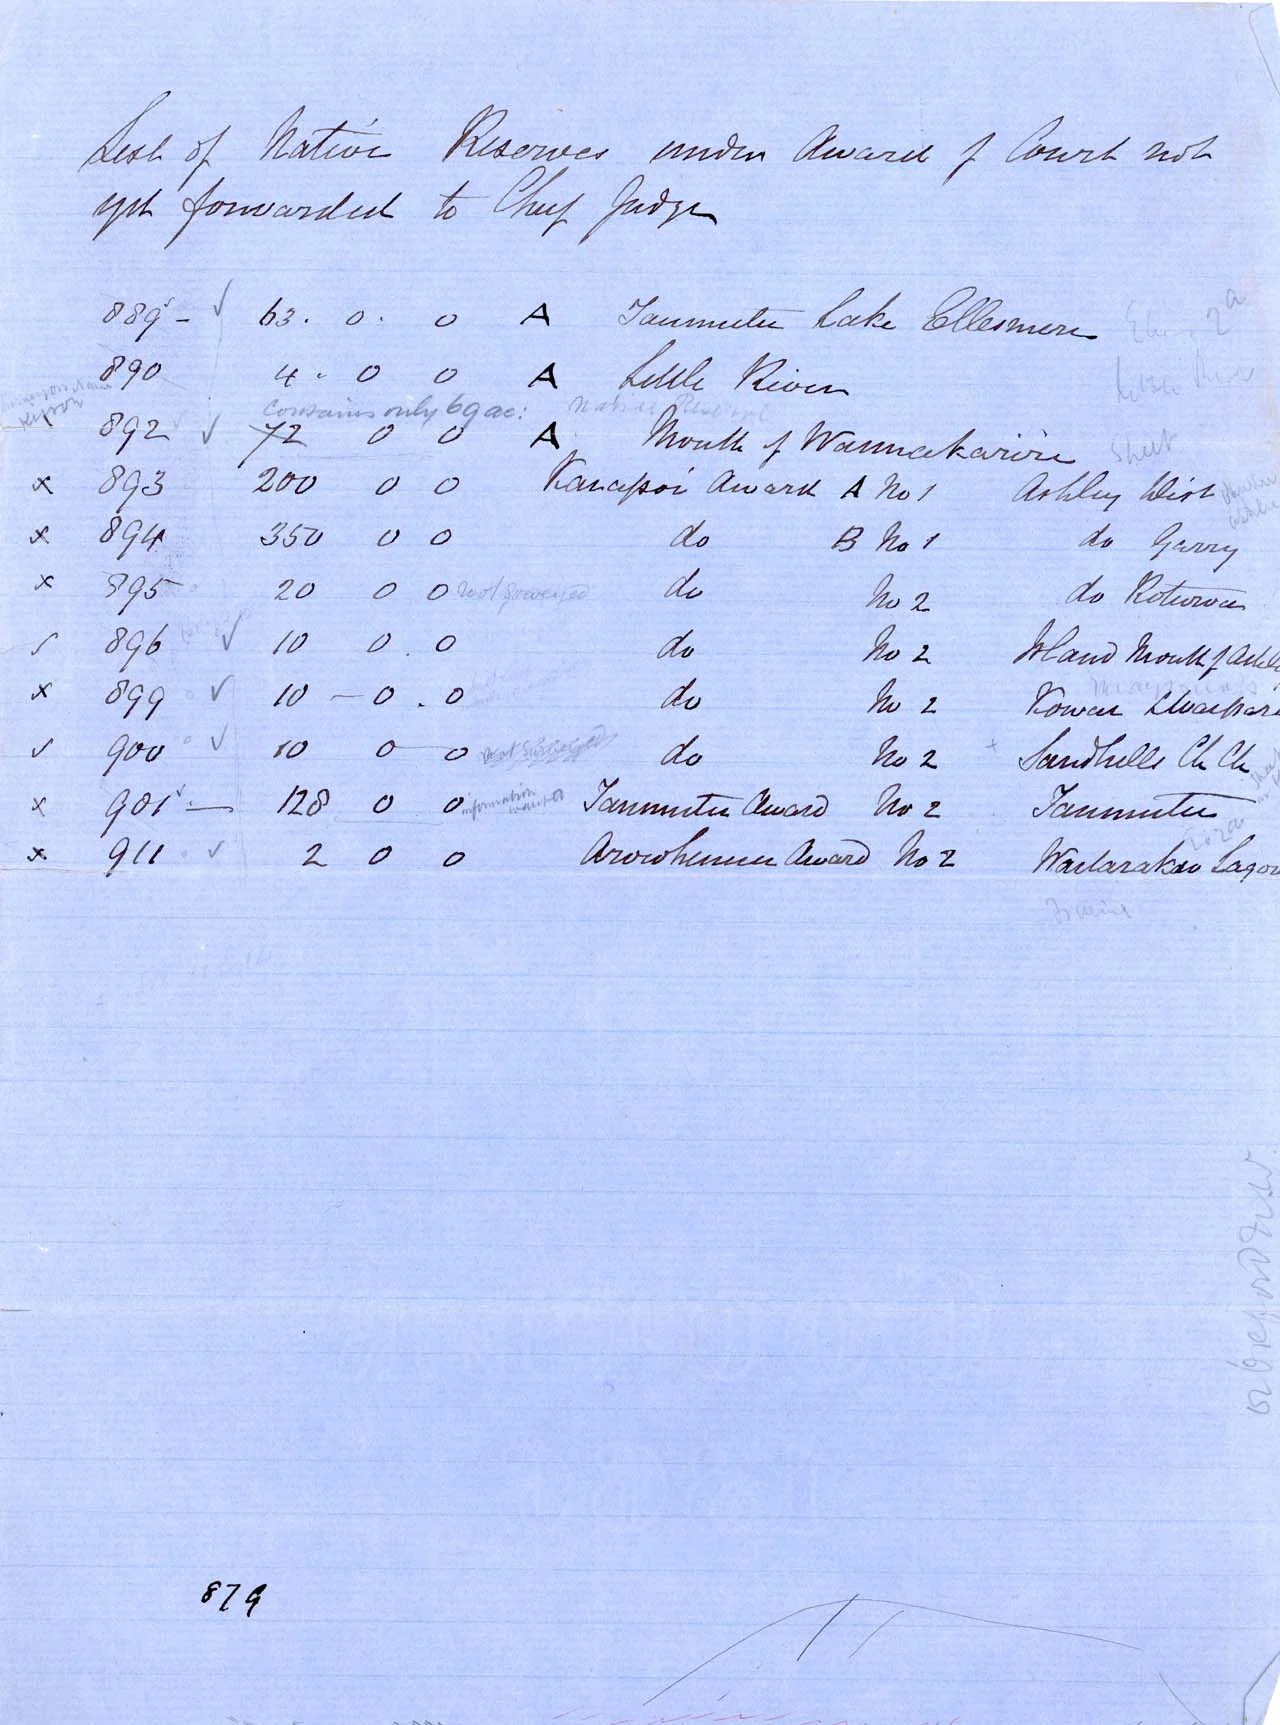 List of Native Reserves under Award of Court not
yet forwarded to Chief Judge
889 - ✓ 63. 0. 0 A Taumutu Lake Ellesmere
890 4 - 0 0 A Little River
contains only 69 ac: Native Reserve
892 ✓ 72 0 0 A Mouth of Waimakariri
x 893 200 0 0 Kaiapoi Award A No 1 Ashley Dist
x 894 350 0 0 do B No 1 do
x 895 20 0 0 not surveyed do No 2 do
✓ 896 ✓ 10 0 . 0 do No 2 Island Mouth of
x 899 ✓ 10 - 0 . 0 do No 2 Kowai
✓ 900 ✓ 10 0 0 not surveyed do No 2 Sandhills Ch Ch
x 901 - 128 0 0 information wanted Taumutu Award No 2 Taumutu
x 911 ✓ 2 0 0 Arowhenua Award No 2
879